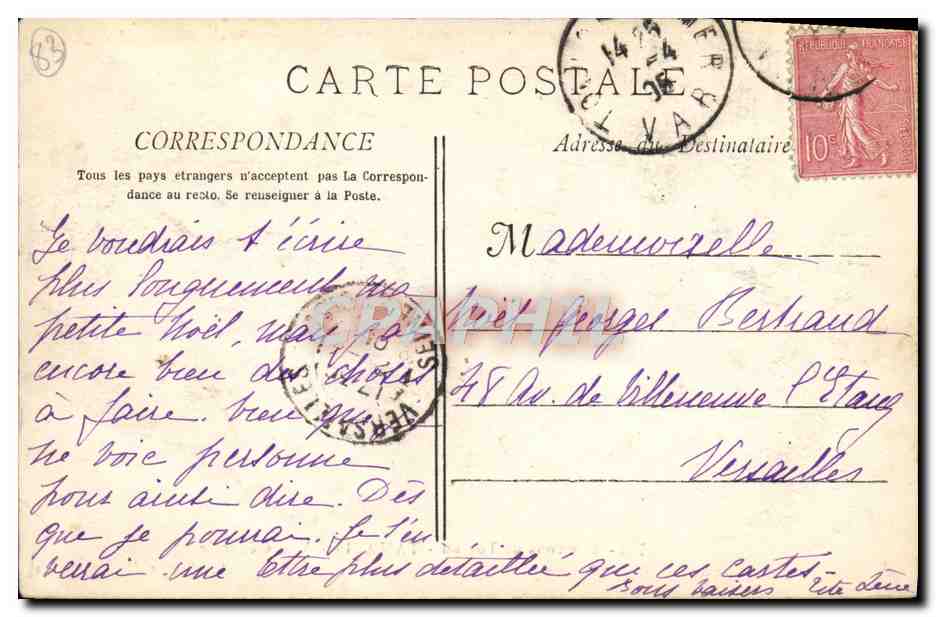 83
CARTE POSTALE
CORRESPONDANCE
Tous les pays etrangers n'acceptent pas La Correspon-
dance au recto. Se renseigner à la Poste.
Adresse du Destinataire
RÉPUBLIQUE FRANÇAISE
10c
14 25
-4
05
VAR
VERSAILLES
SEINE
Je voudrais t'écrire
plus longuement ma
petite Noël, mais j'ai
encore bien des choses
à faire. bien que je
ne voie personne
pour ainsi dire. Dès
que je pourrai. Je t'en
verrai une lettre plus détaillée que ces cartes-
Bons baisers
Mademoiselle
Noël Georges Bertrand
48 Av. de Villeneuve l'Etang
Versailles
CPAPHIL